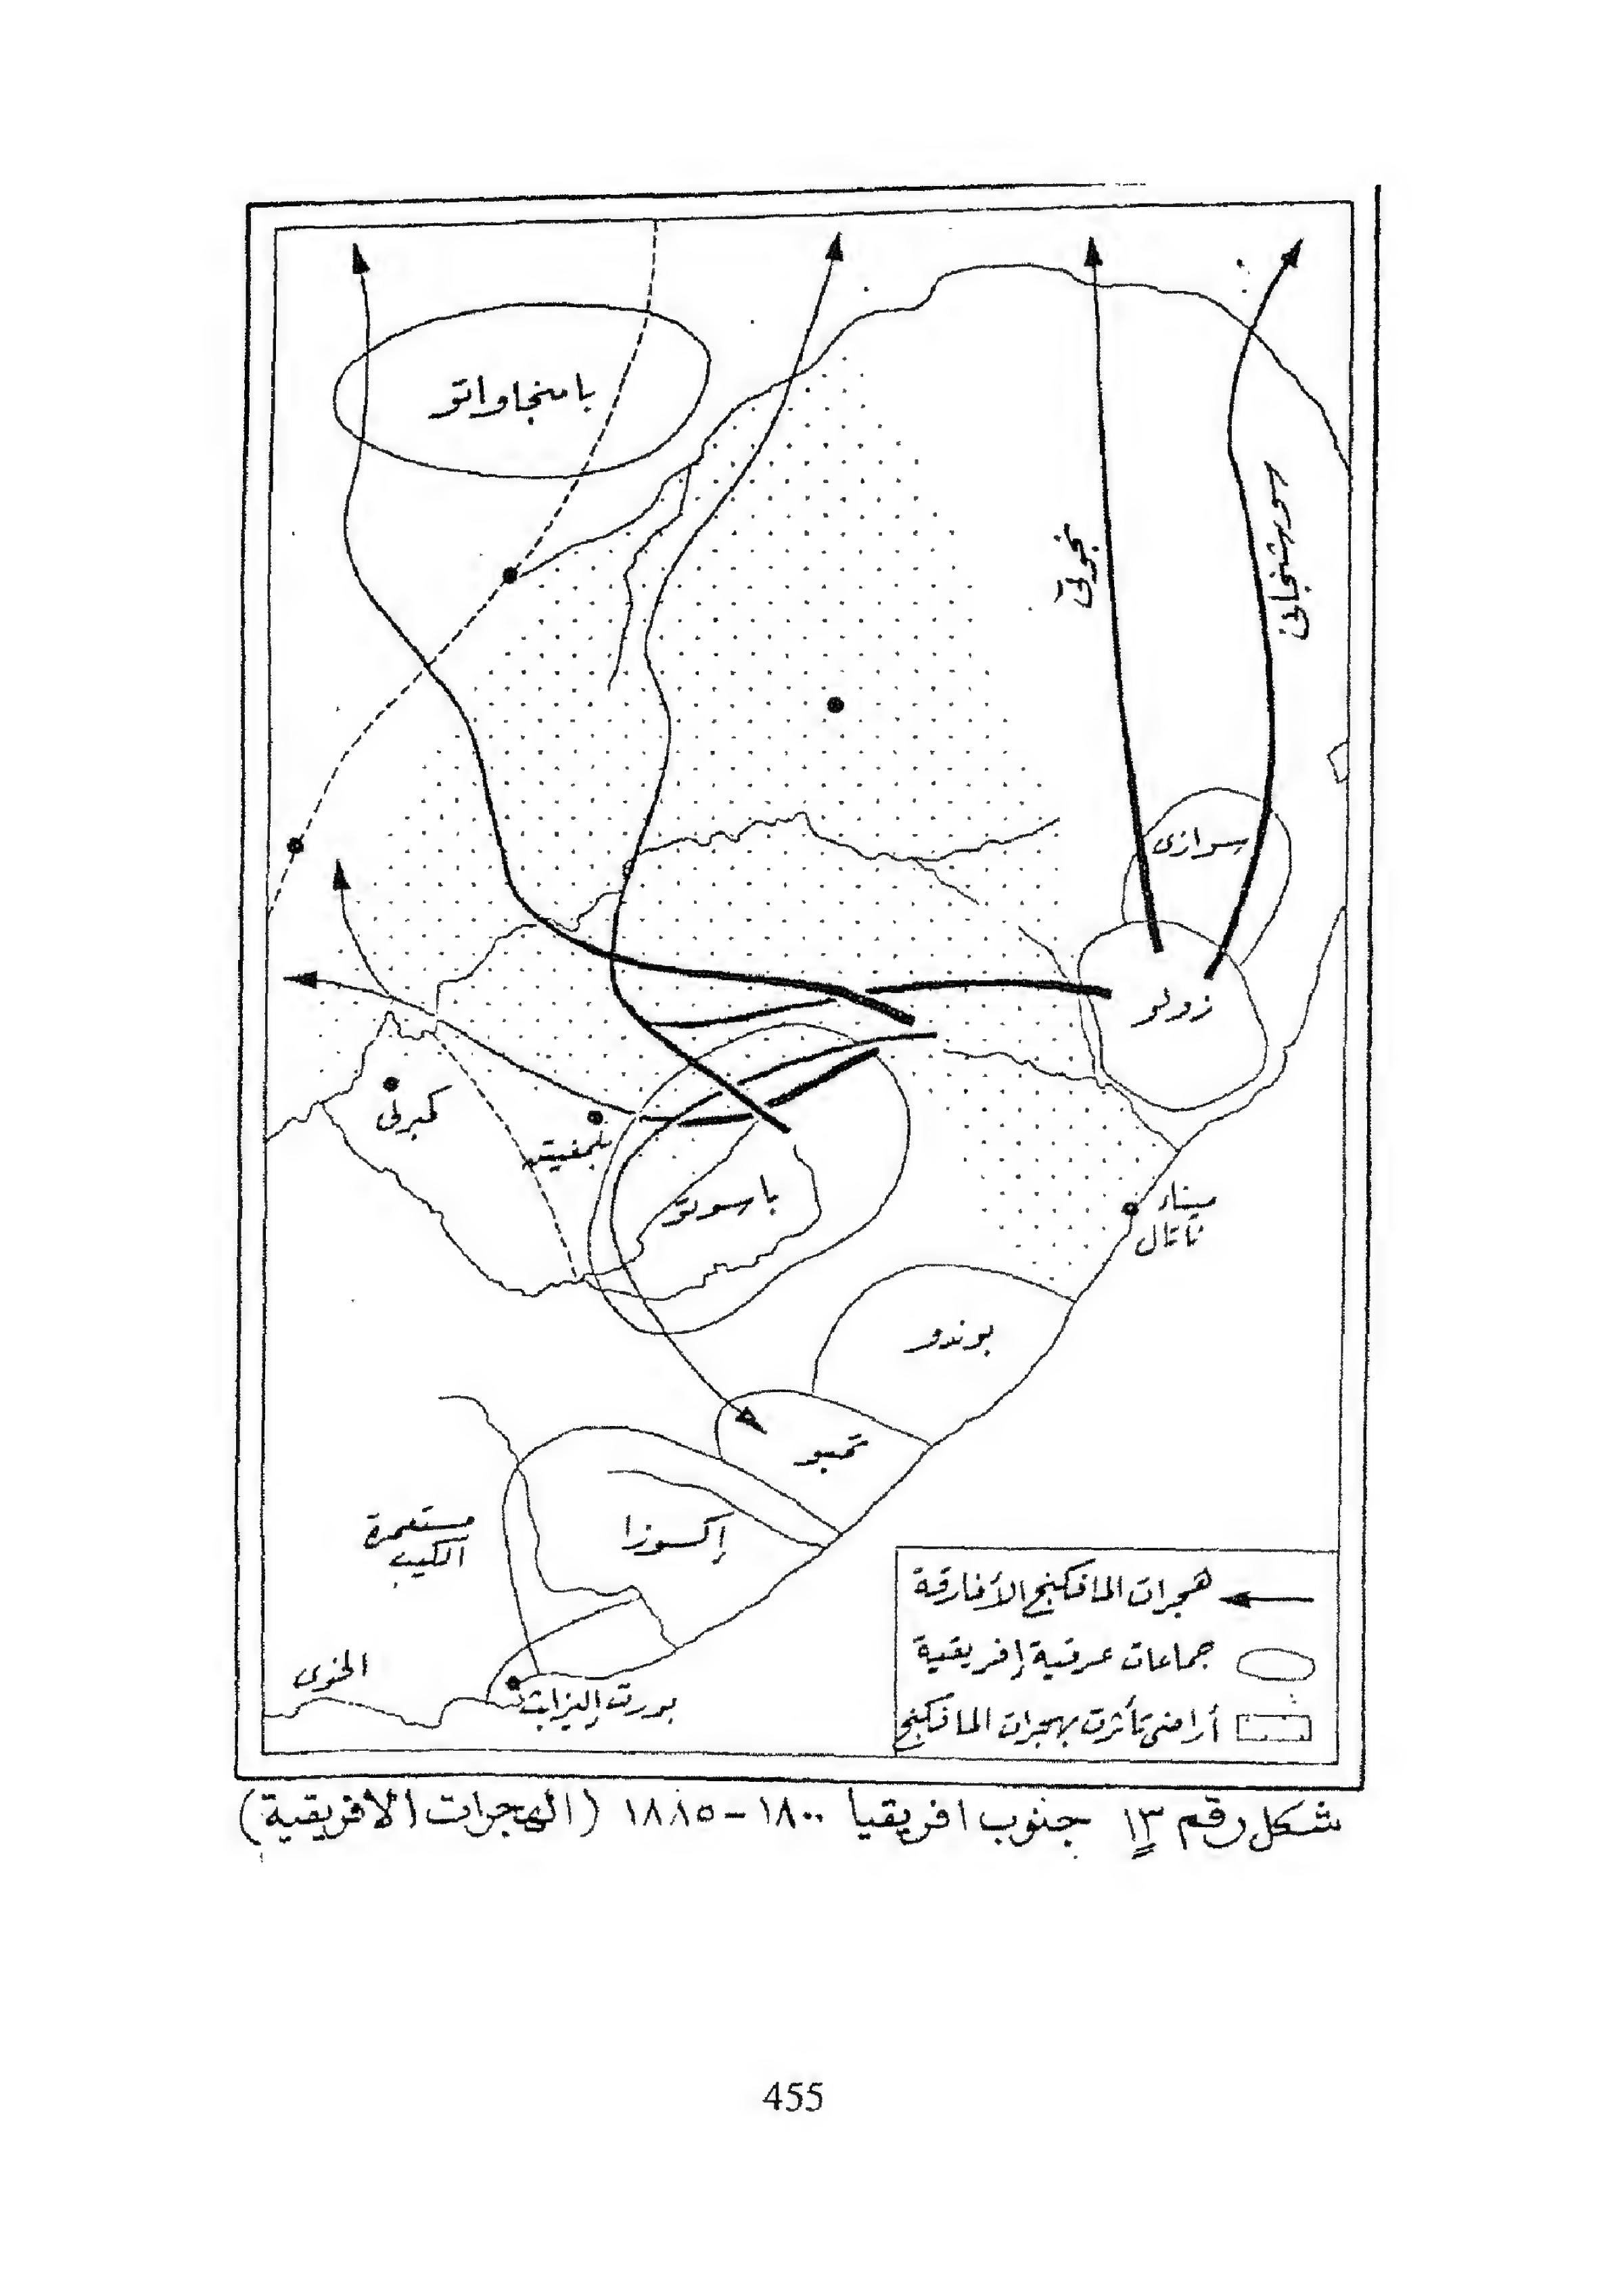 بامنجاواتو
نجونى
سوشنجانى
سوازى
زولو
كمبرلى
بلمفنتين
باسوتو
ميناء
ناتال
بوندو
تمبو
إكسوزا
مستعمرة
الكيب
الخوى
بورت إليزابث
هجرات المافكينج الأفارقة
جماعات عرقية إفريقية
أراضى تأثرت بهجرات المافكينج
شكل رقم ١٣ جنوب افريقيا ١٨٠٠-١٨٨٥ (الهجرات الافريقية)
455